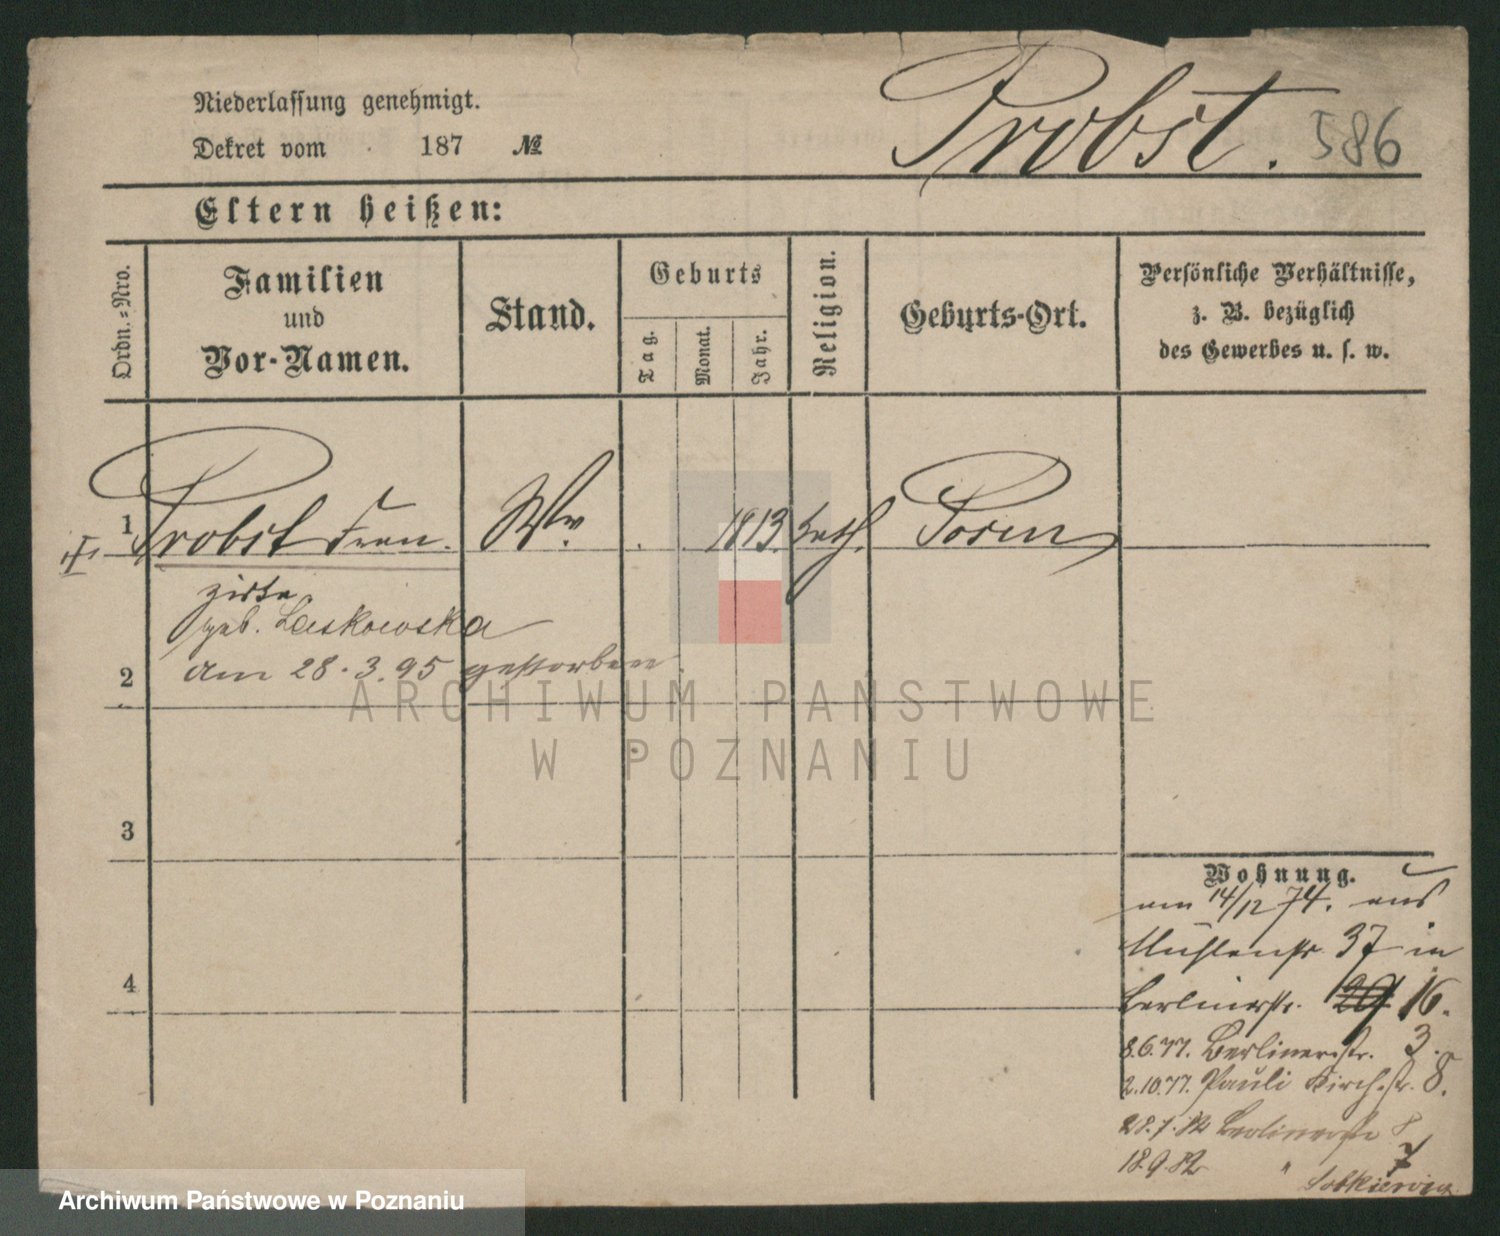 Niederlassung genehmigt.
Probst. 586
Dekret vom 187 №
Eltern heißen:
Ordn.-Nro.
Familien
und
Vor-Namen.
Stand.
Geburts
Tag.
Monat.
Jahr.
Religion.
Geburts-Ort.
Persönliche Verhältnisse,
z. B. bezüglich
des Gewerbes u. s. w.
1 Probst Fran. Ww. 1813. kath. Posen
geb. Laskowska
am 28.3.95 gestorben.
2
ARCHIWUM PAŃSTWOWE
W POZNANIU
3
4
Wohnung.
am 14/12 74. aus
Mühlenstr. 37 in
Berlinerstr. 16.
8.6.77. Berlinerstr. 3.
2.10.77. Pauli Kirchstr. 8.
28.7.82 Berlinerstr 8
18.9.82 " 7
Archiwum Państwowe w Poznaniu